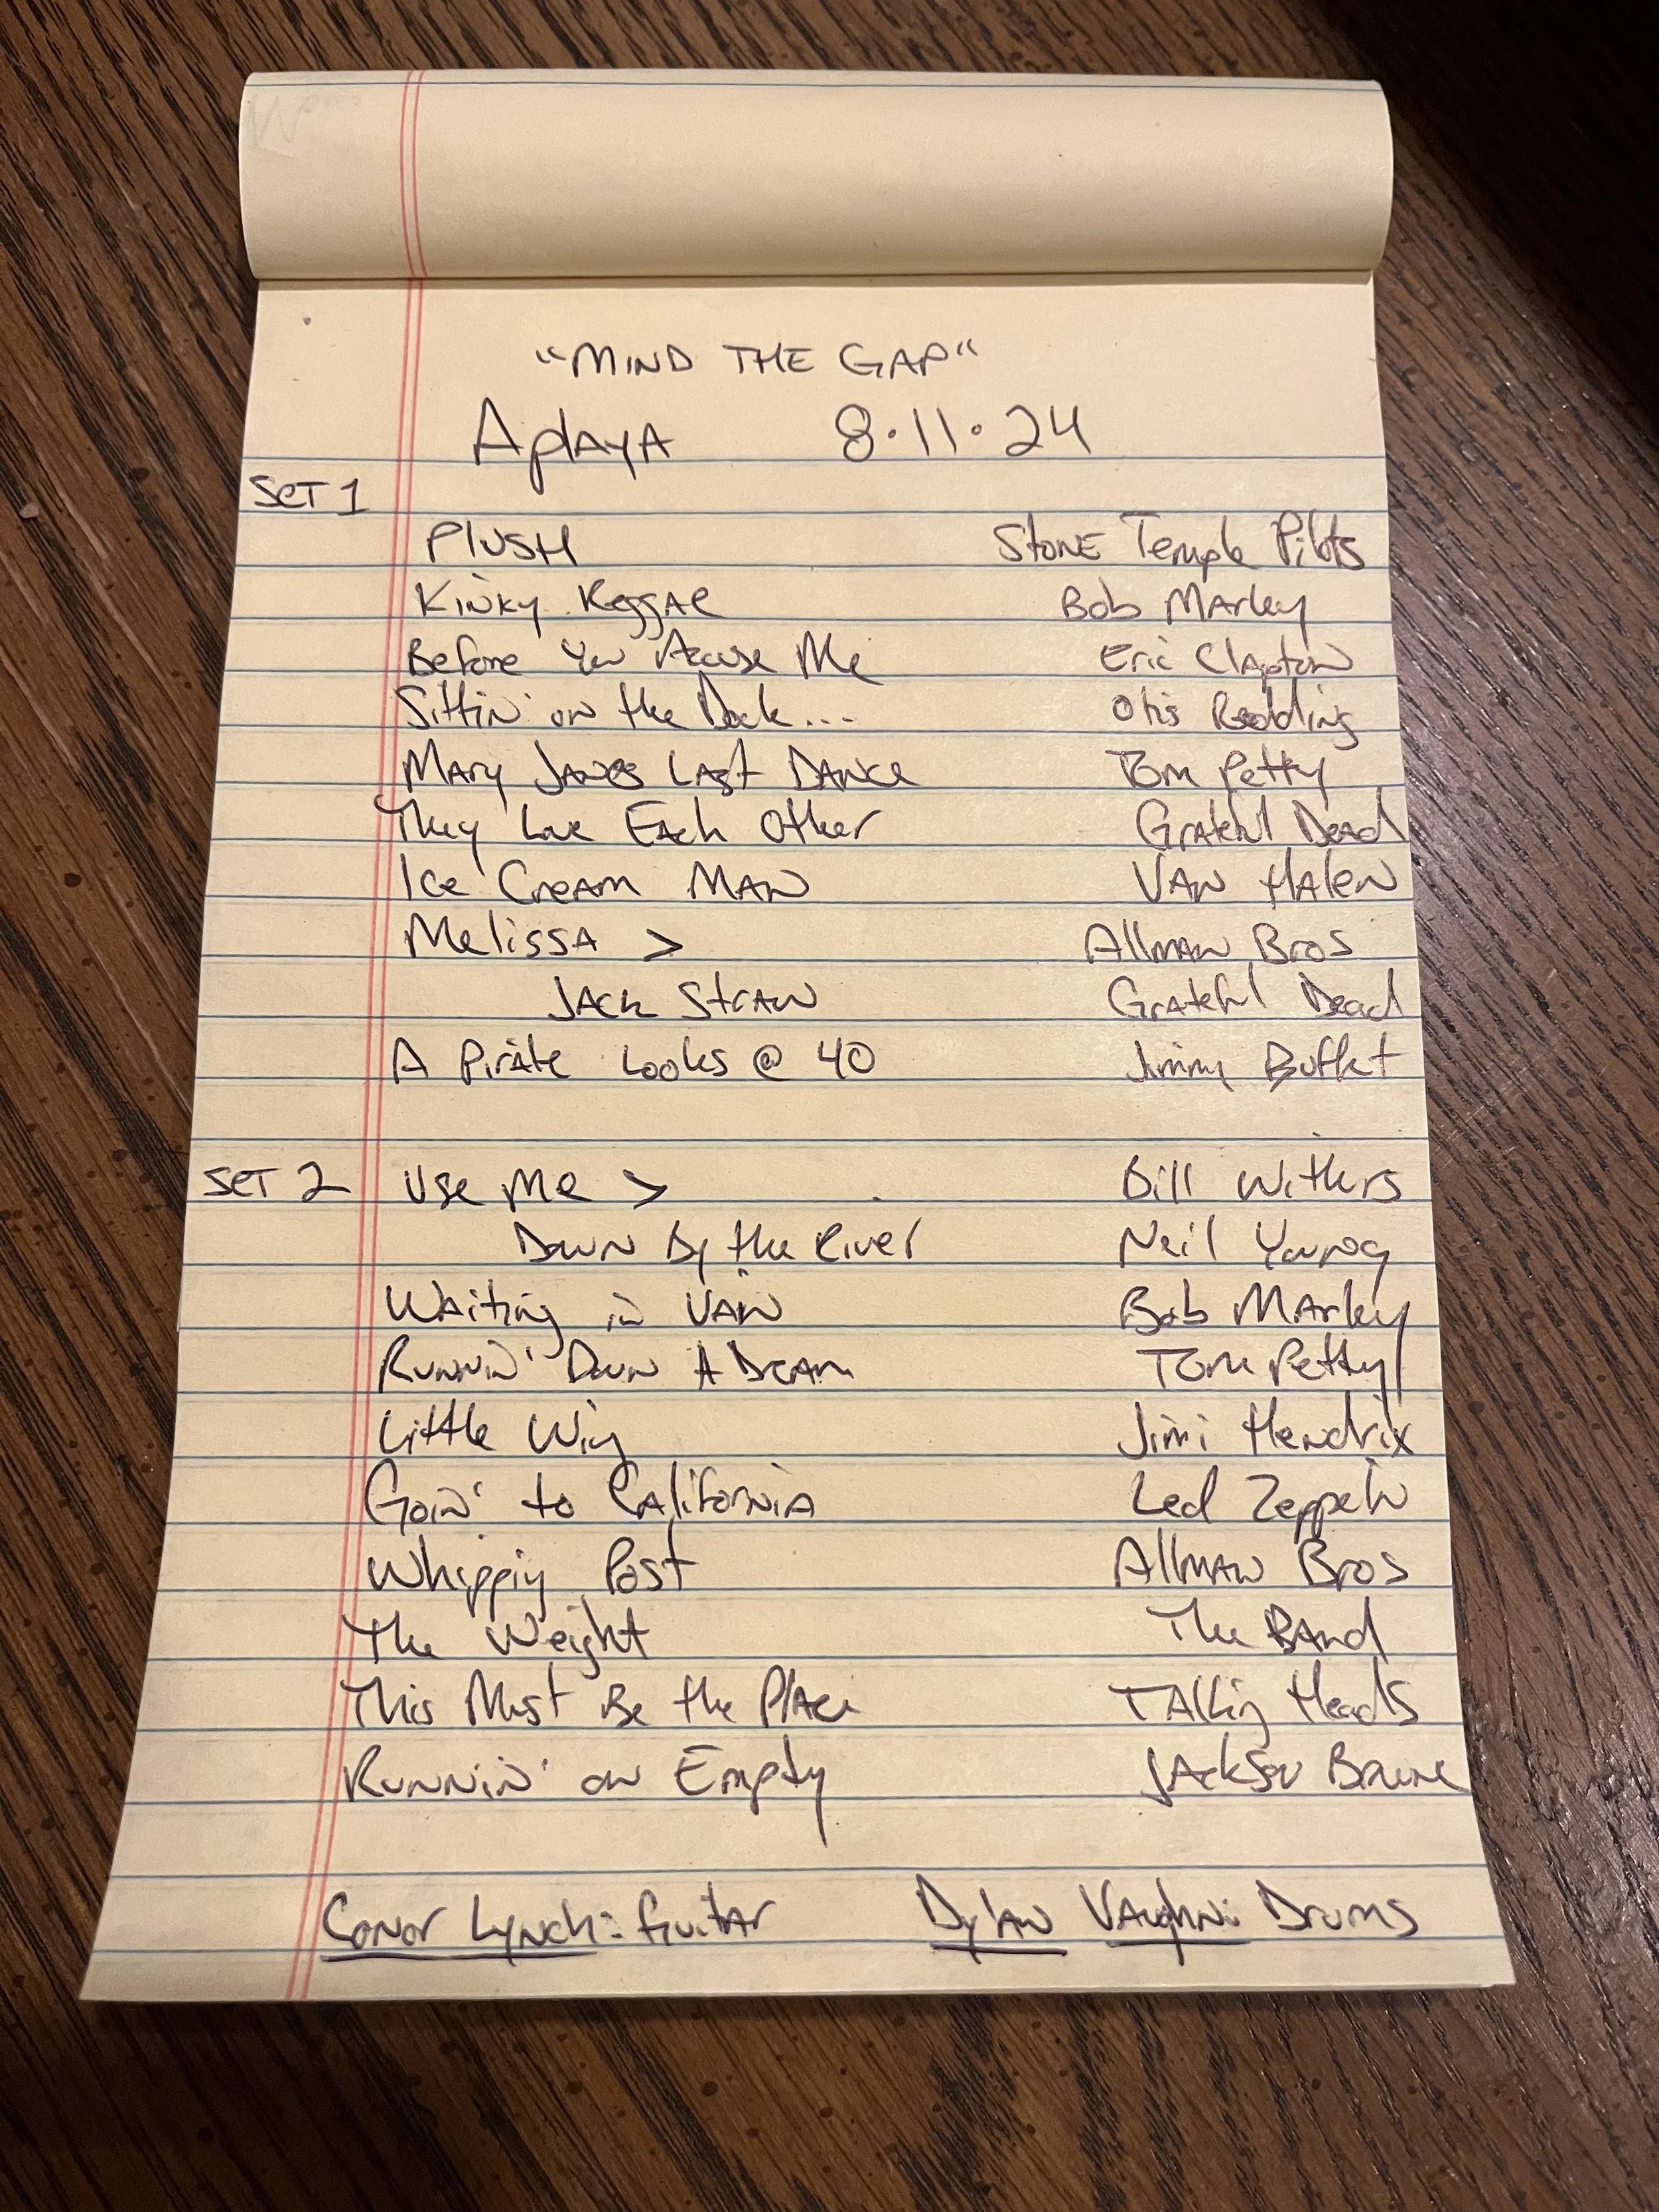 "MIND THE GAP"
Aplaya 8·11·24
SET 1
Plush Stone Temple Pilots
Kinky Reggae Bob Marley
Before You Accuse Me Eric Clapton
Sittin' on the Dock... Otis Redding
Mary Janes Last Dance Tom Petty
They Love Each Other Grateful Dead
Ice Cream Man Van Halen
Melissa > Allman Bros
Jack Straw Grateful Dead
A Pirate Looks @ 40 Jimmy Buffet
SET 2 Use Me > Bill Withers
Down By the River Neil Young
Waiting in Vain Bob Marley
Runnin' Down A Dream Tom Petty
Little Wing Jimi Hendrix
Goin' to California Led Zeppelin
Whipping Post Allman Bros
The Weight The Band
This Must Be the Place Talking Heads
Runnin' on Empty Jackson Browne
Conor Lynch: Guitar Dylan Vaughn: Drums